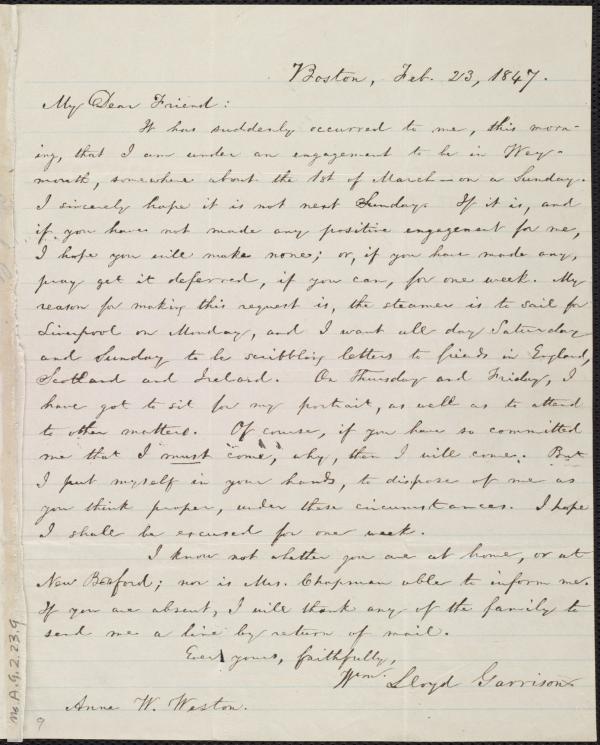 Boston, Feb. 23, 1847.
My Dear Friend:
It has suddenly occurred to me, this morn-
ing, that I am under an engagement to be in Wey-
mouth, somewhere about the 1st of March—on a Sunday.
I sincerely hope it is not next Sunday. If it is, and
if you have not made any positive engagement for me,
I hope you will make none; or, if you have made any,
pray get it deferred, if you can, for one week. My
reason for making this request is, the steamer is to sail for
Liverpool on Monday, and I want all day Saturday
and Sunday to be scribbling letters to frieds in England,
Scotland and Ireland. On Thursday and Friday, I
have got to sit for my portrait, as well as to attend
to other matters. Of course, if you have so committed
me that I must "come," why, then I will come. But
I put myself in your hands, to dispose of me as
you think proper, under these circumstances. I hope
I shall be excused for one week.
I know not whether you are at home, or at
New Bedford; nor is Mrs. Chapman able to inform me.
If you are absent, I will thank any of the family to
send me a line by return of mail.
Ever yours, faithfully,
Wm. Lloyd Garrison.
Anne W. Weston.
Ms A.9.2.23.9
9